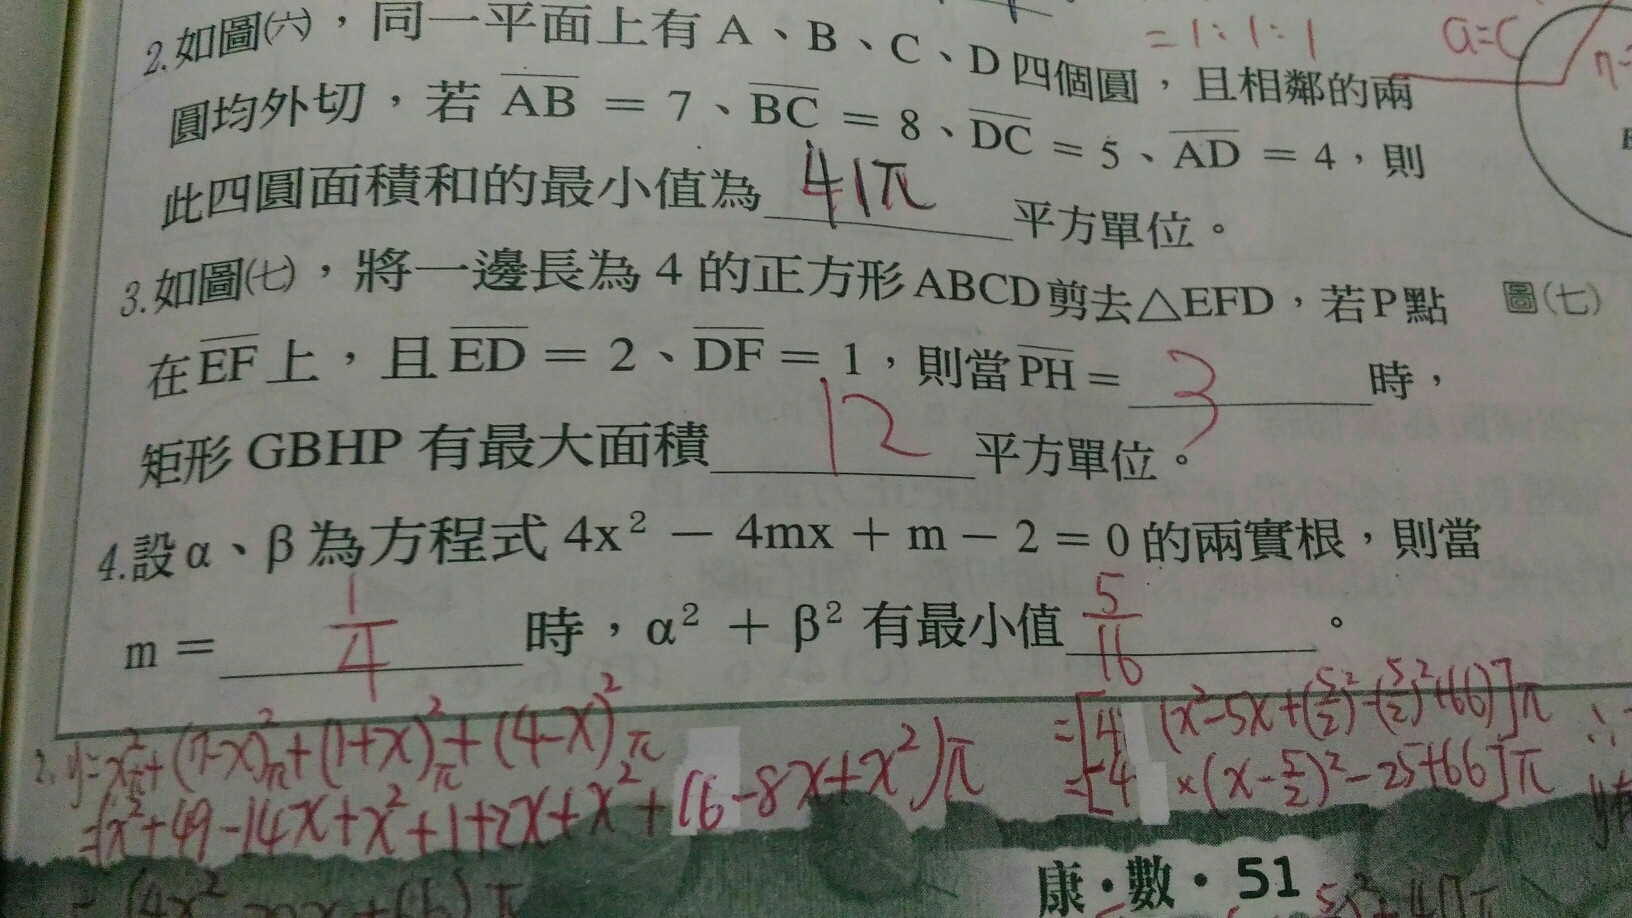 = 1 : 1 : 1
a=c
2.如圖㈥，同一平面上有 A、B、C、D 四個圓，且相鄰的兩
圓均外切，若 AB = 7、BC = 8、DC = 5、AD = 4，則
此四圓面積和的最小值為 41π 平方單位。
3.如圖㈦，將一邊長為 4 的正方形ABCD剪去△EFD，若P點
圖㈦
在EF上，且ED = 2、DF = 1，則當PH = 3 時，
矩形 GBHP 有最大面積 12 平方單位。
4.設α、β為方程式 4x² － 4mx + m － 2 = 0 的兩實根，則當
m = 1/4 時，α² + β² 有最小值 5/16 。
2. y=x²π+(7-x)²π+(1+x)²π+(4-x)²π
=(x²+49-14x+x²+1+2x+x²+16-8x+x²)π
=[4(x²-5x+(5/2)²-(5/2)²+66)]π
=[4×(x-5/2)²-25+66]π
康・數・51